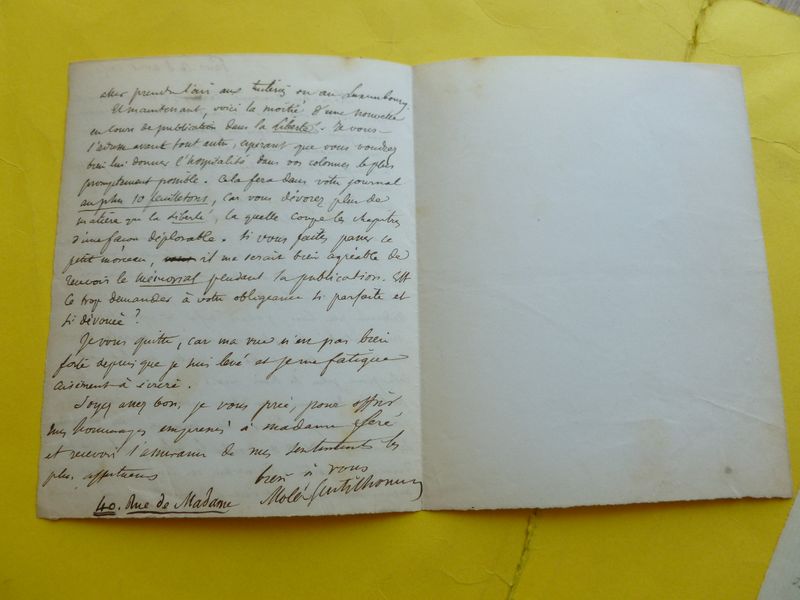 aller prendre l'air aux Tuileries ou au Luxembourg.
Et maintenant, voici la moitié d'une nouvelle
en cours de publication dans la Liberté. Je vous
l'adresse avant tout autre, espérant que vous voudrez
bien lui donner l'hospitalité dans vos colonnes le plus
promptement possible. Cela fera dans votre journal
au plus 10 feuilletons, car vous dévorez plus de
matière que la Liberté, la quelle coupe les chapitres
d'une façon déplorable. Si vous faites passer ce
petit morceau, il me serait bien agréable de
recevoir le Mémorial pendant la publication. Est
ce trop demander à votre obligeance si parfaite et
si dévouée ?
Je vous quitte, car ma vue n'est pas bien
forte depuis que je suis levé et je me fatigue
aisément à écrire.
Soyez assez bon, je vous prie, pour offrir
mes hommages empressés à madame
et recevoir l'assurance de mes sentiments les
plus affectueux
bien à vous
Molé Gentilhomme
40. Rue de Madame